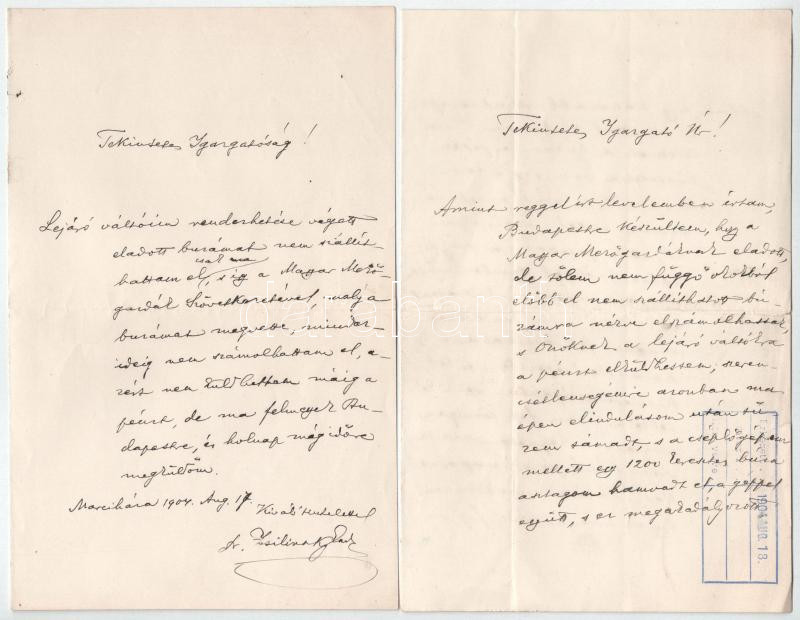 Tekintetes Igazgatóság!
Lejáró váltóim rendezhetése végett
eladott buzámat nem szállít-
csak ma
hattam el, s így a Magyar Mező-
gazdák Szövetkezetével, mely a
buzámat megvette, mindez-
ideig nem számolhattam el, a-
zért nem küldhettem máig a
pénzt, de ma felmegyek Bu-
dapestre, és holnap még időre
megküldöm.
Marcziháza 1904. Aug. 17.
Kiváló tisztelettel
dr. Zsilinszky Endre
Tekintetes Igazgató Úr!
Amint reggel írt levelemben írtam,
Budapestre készültem, hogy a
Magyar Mezőgazdáknak eladott,
de tőlem nem függő okokból
előbb el nem szállíthatott bú-
zámra nézve elszámolhassak,
s Önöknek a lejáró váltókra
a pénzt elküldhessem, szeren-
csétlenségemre azonban ma
épen elindulásom után tű-
zem támadt, s a cséplőgépem
mellett egy 1200 keresztes buza
asztagom hamvadt el, a géppel
együtt, s ez megakadályozott
1904 AUG 18.
darabanth